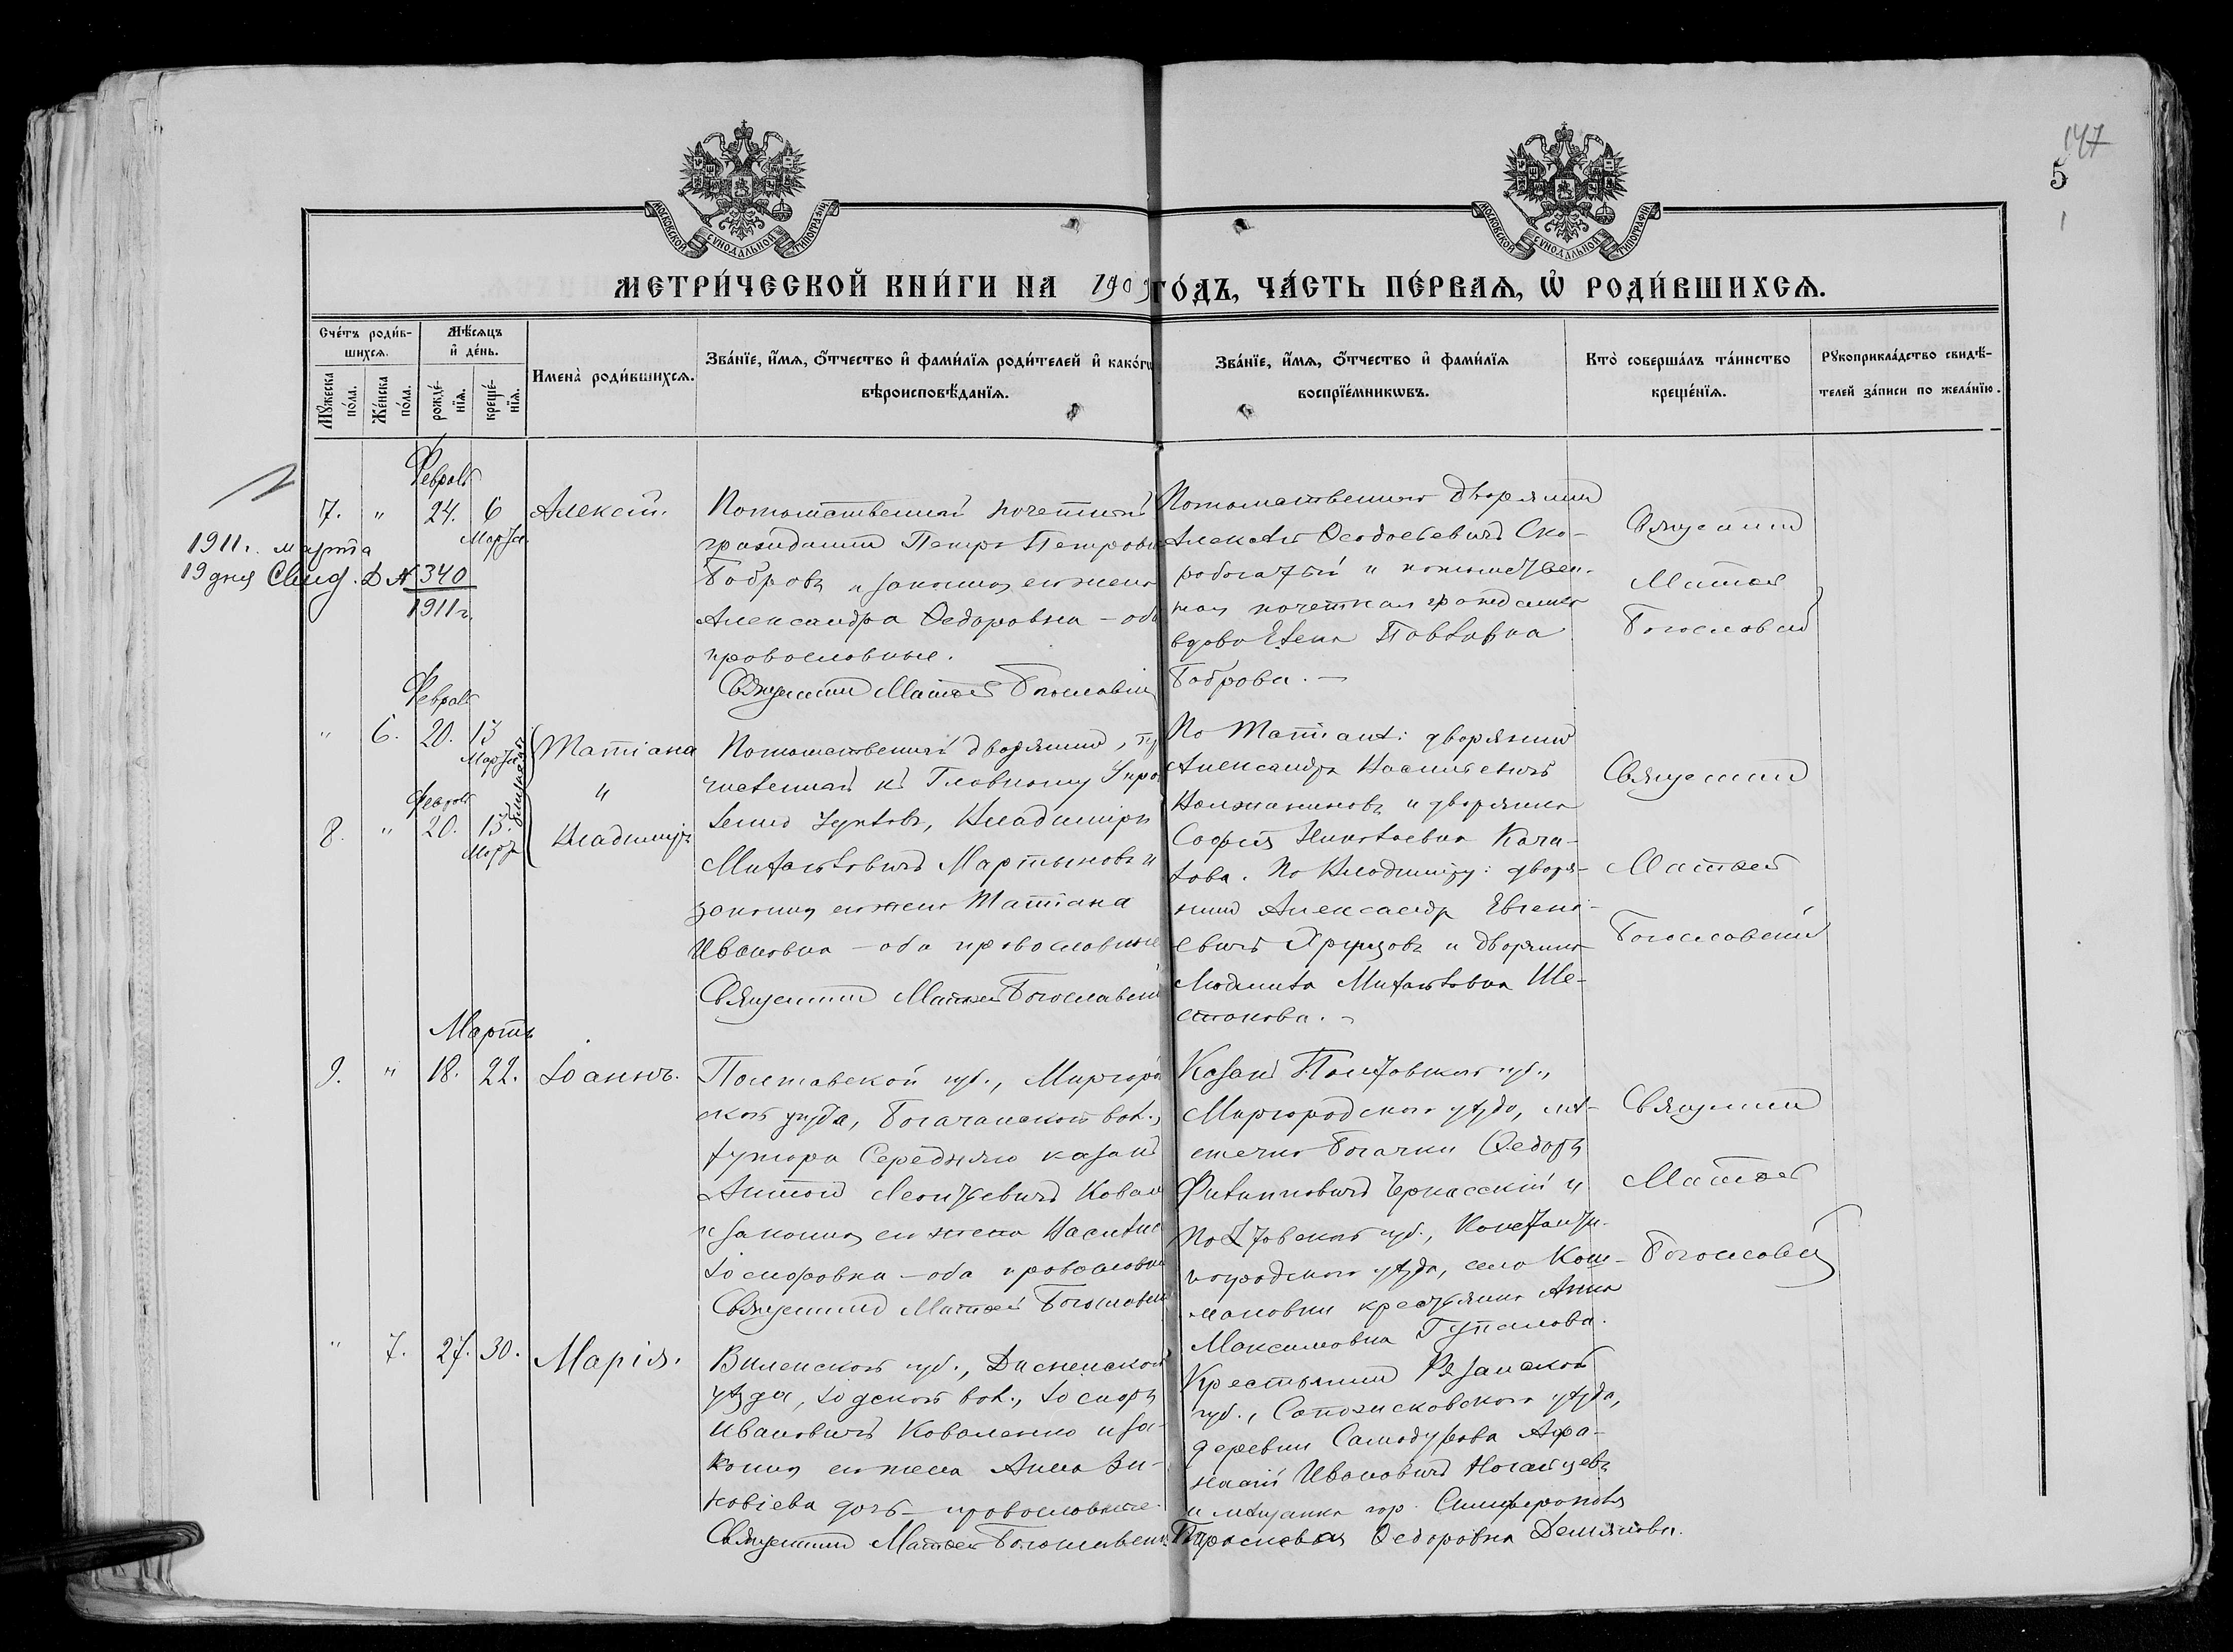 147
5
1
МОСКОВСКОЙ СѴНОДАЛЬНОЙ ТИПОГРАФІИ
МОСКОВСКОЙ СѴНОДАЛЬНОЙ ТИПОГРАФІИ
МЕТРИ́ЧЕСКОЙ КНИ́ГИ НА 1909 ГО́ДЪ, ЧА́СТЬ ПЕ́РВАѦ, Ѡ҆ РОДИ́ВШИХСѦ.
Сче́тъ роди́в-
шихсѧ.
Мꙋжеска по́ла.
Же́нска по́ла.
Мѣ́сѧцъ
и҆ де́нь.
рожде́-
нїѧ.
креще́-
нїѧ.
Имена̀ роди́вшихсѧ.
Зва́нїе, и҆́мѧ, ѻ҆́тчество и҆ фами́лїѧ роди́телей и҆ како́гѡ
вѣроисповѣ́данїѧ.
Зва́нїе, и҆́мѧ, ѻ҆́тчество и҆ фами́лїѧ
воспрїе́мникѡвъ.
Кто̀ соверша́лъ та́инство
креще́нїѧ.
Рꙋкоприкла́дство свидѣ́-
телей за́писи по жела́нїю.
Февраль
7. " 24. 6 Марта. Алексій.
1911 г. марта
19 дня Свид. Д № 340
1911 г.
Потомственный почетный
гражданинъ Петръ Петрович
Бобровъ и законная его жена
Александра Ѳедоровна – оба
православные.
Священникъ Матѳей Богословскій
Потомственный дворянинъ
Алексѣй Ѳеодосьевичъ Ско-
робогатый и потомствен-
ная почетная гражданка
вдова Елена Павловна
Боброва. –
Священникъ
Матѳей
Богословскій
Февраль
" 6. 20. 15 Марта Татіана
"
Февраль
8. " 20. 15. Марта Владиміръ
близнецы
Потомственный дворянинъ, при
численный къ Главному Управ
Михайловичъ Мартыновъ и
законная его жена Татіана
Ивановна – оба православные
Священникъ Матѳей Богословскій
По Татіанѣ: дворянинъ
Александръ Васильевичъ
и дворянка
Софія Николаевна Кача-
лова. По Владиміру: дворя-
нинъ Александръ Евгені-
евичъ и дворянка
Людмила Михайловна Ше-
стакова. –
Священникъ
Матѳей
Богословскій
Мартъ
9. " 18. 22. Іоаннъ.
Полтавской губ., Миргород
ского уѣзда, Богачанской вол.,
хутора Середняго казакъ
Антонъ Леонтьевичъ Ковал
и законная его жена Василиса
Іосифовна – оба православные
Священникъ Матѳей Богословскій
Казакъ Полтавской губ.,
Миргородскаго уѣзда, мѣ-
стечка Богачки Ѳедоръ
Филипповичъ Черкасскій и
Полтавской губ., Константи-
ноградскаго уѣзда, села Кош-
мановки крестьянка Анна
Максимовна Гупалова.
Священникъ
Матѳей
Богословскій
" 7. 27. 30. Марія.
Виленской губ., Дисненскаго
уѣзда, Іодской вол., Іосифъ
Ивановичъ Коваленко и за-
конная его жена Анна Зи-
новіева дочь – православные.
Священникъ Матѳей Богословскій
Крестьянинъ Рязанской
губ., Сапожковскаго уѣзда,
деревни Самодурова Аѳа-
насій Ивановичъ Ногайцевъ
и мѣщанка гор. Симферополя
Параскева Ѳедоровна Демянова.